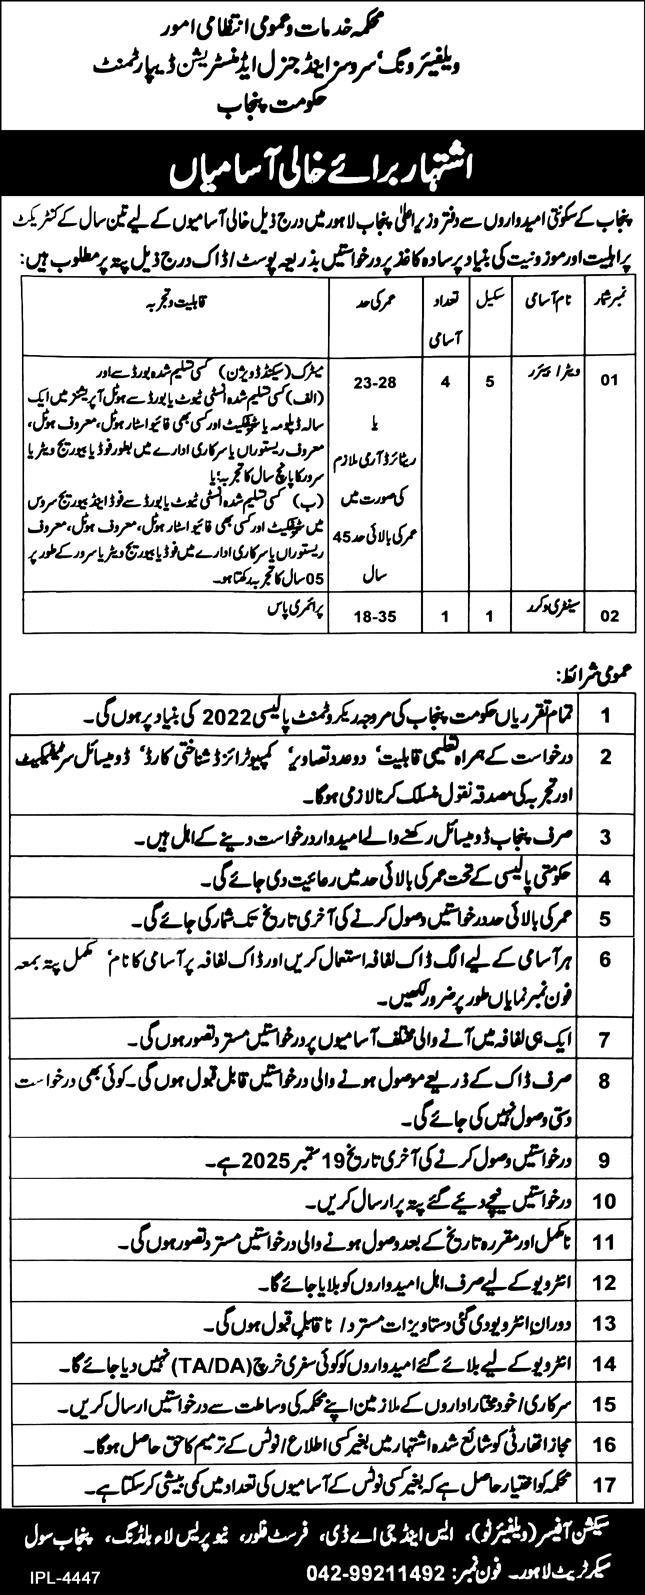 محکمہ خدمات و عمومی انتظامی امور
ویلفیئر ونگ، سروسز اینڈ جنرل ایڈمنسٹریشن ڈیپارٹمنٹ
حکومت پنجاب
اشتہار برائے خالی آسامیاں
پنجاب کے سکونتی امیدواروں سے دفتر وزیر اعلیٰ پنجاب لاہور میں درج ذیل خالی آسامیوں کے لیے تین سال کے کنٹریکٹ
پر اہلیت اور موزونیت کی بنیاد پر سادہ کاغذ پر درخواستیں بذریعہ پوسٹ/ڈاک درج ذیل پتہ پر مطلوب ہیں:
نمبر شمار نام آسامی سکیل تعداد آسامی عمر کی حد قابلیت و تجربہ
01 ویٹر/بیئرر 5 4 23-28 یا ریٹائرڈ آرمی ملازم کی صورت میں عمر کی بالائی حد 45 سال
میٹرک (سیکنڈ ڈویژن) کسی تسلیم شدہ بورڈ سے اور
(الف) کسی تسلیم شدہ انسٹی ٹیوٹ یا بورڈ سے ہوٹل آپریشنز میں ایک
سالہ ڈپلومہ یا سرٹیفکیٹ اور کسی بھی فائیو اسٹار ہوٹل، معروف ہوٹل،
معروف ریستوراں یا سرکاری ادارے میں بطور فوڈ یا بیوریج ویٹر یا
سرور کا پانچ سال کا تجربہ؛ یا
(ب) کسی تسلیم شدہ انسٹی ٹیوٹ یا بورڈ سے فوڈ اینڈ بیوریج سروس
میں سرٹیفکیٹ اور کسی بھی فائیو اسٹار ہوٹل، معروف ہوٹل، معروف
ریستوراں یا سرکاری ادارے میں فوڈ یا بیوریج ویٹر یا سرور کے طور پر
05 سال کا تجربہ رکھتا ہو۔
02 سینٹری ورکر 1 1 18-35 پرائمری پاس
عمومی شرائط:
1 تمام تقرریاں حکومت پنجاب کی مروجہ ریکروٹمنٹ پالیسی 2022 کی بنیاد پر ہوں گی۔
2 درخواست کے ہمراہ تعلیمی قابلیت، دو عدد تصاویر، کمپیوٹرائزڈ شناختی کارڈ، ڈومیسائل سرٹیفکیٹ
اور تجربہ کی مصدقہ نقول منسلک کرنا لازمی ہوگا۔
3 صرف پنجاب ڈومیسائل رکھنے والے امیدوار درخواست دینے کے اہل ہیں۔
4 حکومتی پالیسی کے تحت عمر کی بالائی حد میں رعایت دی جائے گی۔
5 عمر کی بالائی حد درخواستیں وصول کرنے کی آخری تاریخ تک شمار کی جائے گی۔
6 ہر آسامی کے لیے الگ ڈاک لفافہ استعمال کریں اور ڈاک لفافہ پر آسامی کا نام، مکمل پتہ بمعہ
فون نمبر نمایاں طور پر ضرور لکھیں۔
7 ایک ہی لفافہ میں آنے والی مختلف آسامیوں پر درخواستیں مسترد تصور ہوں گی۔
8 صرف ڈاک کے ذریعے موصول ہونے والی درخواستیں قابل قبول ہوں گی۔ کوئی بھی درخواست
دستی وصول نہیں کی جائے گی۔
9 درخواستیں وصول کرنے کی آخری تاریخ 19 ستمبر 2025 ہے۔
10 درخواستیں نیچے دیئے گئے پتہ پر ارسال کریں۔
11 نامکمل اور مقررہ تاریخ کے بعد وصول ہونے والی درخواستیں مسترد تصور ہوں گی۔
12 انٹرویو کے لیے صرف اہل امیدواروں کو بلایا جائے گا۔
13 دوران انٹرویو دی گئی دستاویزات مسترد/ناقابل قبول ہوں گی۔
14 انٹرویو کے لیے بلائے گئے امیدواروں کو کوئی سفری خرچ (TA/DA) نہیں دیا جائے گا۔
15 سرکاری/خودمختار اداروں کے ملازمین اپنے محکمہ کی وساطت سے درخواستیں ارسال کریں۔
16 مجاز اتھارٹی کو شائع شدہ اشتہار میں بغیر کسی اطلاع/نوٹس کے ترمیم کا حق حاصل ہوگا۔
17 محکمہ کو اختیار حاصل ہے کہ بغیر کسی نوٹس کے آسامیوں کی تعداد میں کمی بیشی کر سکتا ہے۔
سیکشن آفیسر (ویلفیئر ٹو)، ایس اینڈ جی اے ڈی، فرسٹ فلور، نیو پریس لاء بلڈنگ، پنجاب سول
سیکرٹریٹ لاہور۔ فون نمبر: 042-99211492
IPL-4447